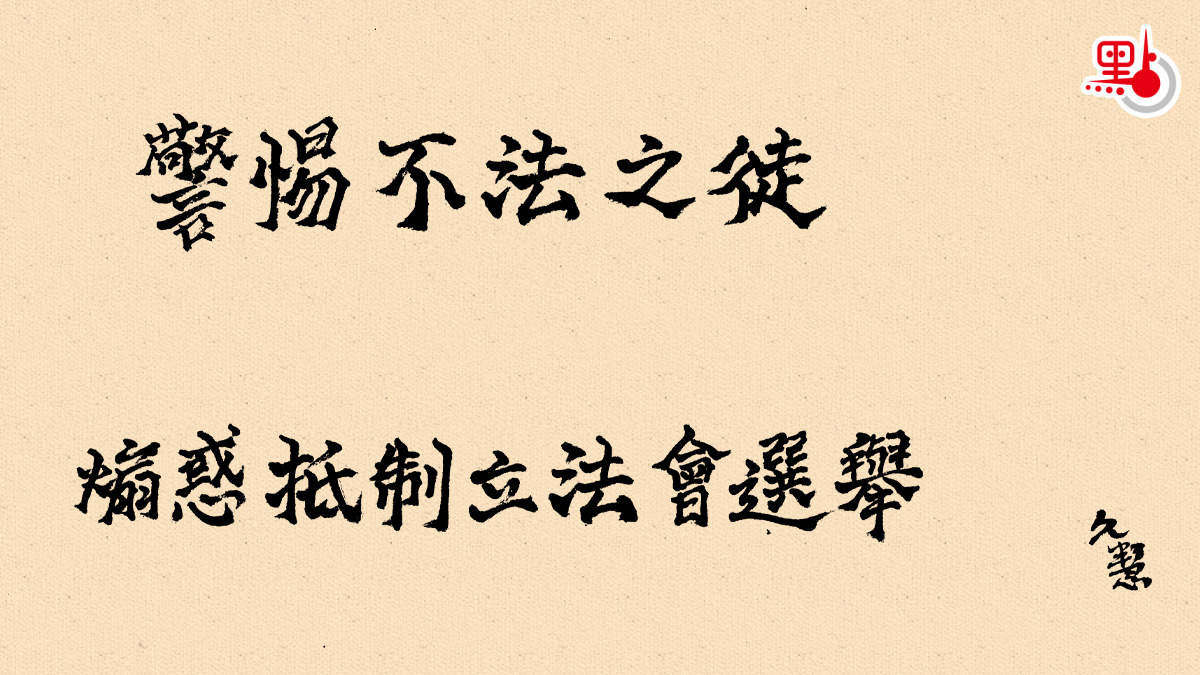 點
警惕不法之徒
煽惑抵制立法會選舉
久慧